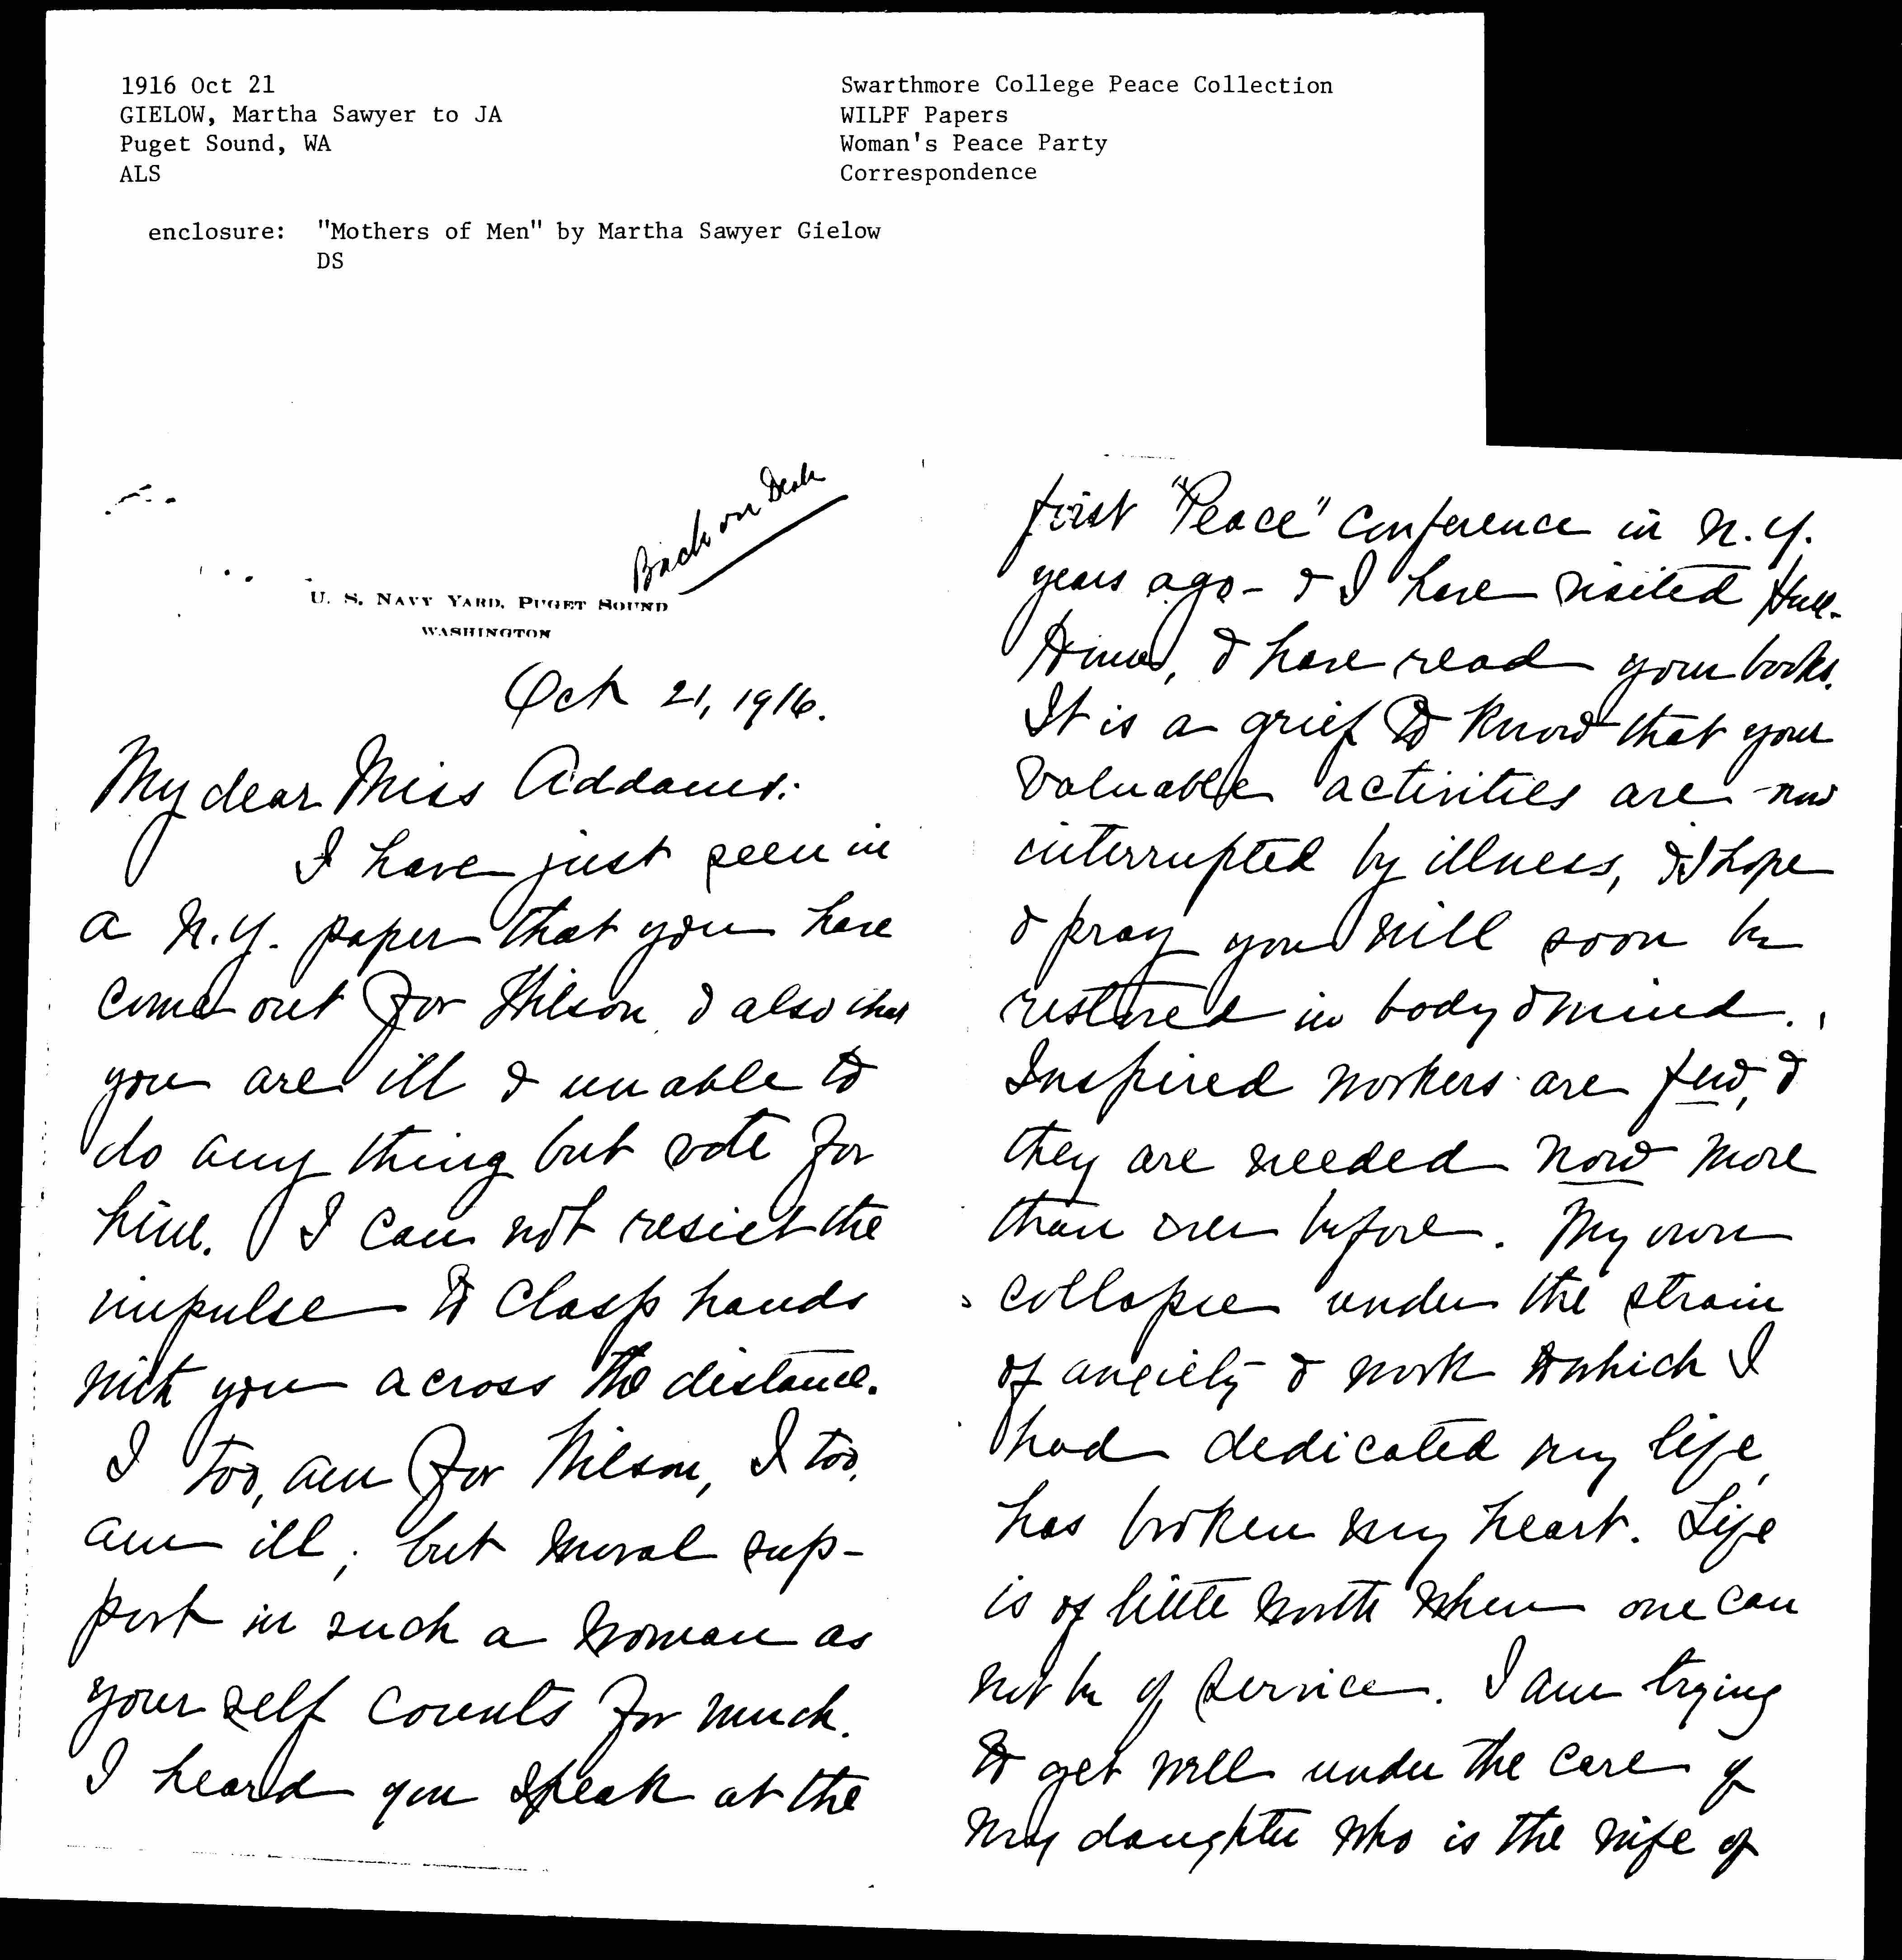 1916 Oct 21
GIELOW, Martha Sawyer to JA
Puget Sound, WA
ALS
enclosure: "Mothers of Men" by Martha Sawyer Gielow
DS
Swarthmore College Peace Collection
WILPF Papers
Woman's Peace Party
Correspondence
Back on Desk
U. S. NAVY YARD, PUGET SOUND
WASHINGTON
Oct 21, 1916.
My dear Miss Addams:
I have just seen in
a N.Y. paper that you have
come out for Wilson & also that
you are ill & unable to
do any thing but vote for
him. I can not resist the
impulse to clasp hands
with you across the distance.
I too, am for Wilson, I too,
am ill, but moral sup-
port in such a woman as
your self counts for much.
I heard you speak at the
first "Peace" Conference in N.Y.
years ago - & I have visited Hull-
House, & have read your books.
It is a grief to know that your
valuable activities are now
interrupted by illness, & I hope
& pray you will soon be
restored in body & mind.
Inspired workers are few, &
they are needed now more
than ever before. My own
collapse under the strain
of anxiety & work to which I
had dedicated my life,
has broken my heart. Life
is of little worth when one can
not be of service. I am trying
to get well under the care of
my daughter who is the wife of